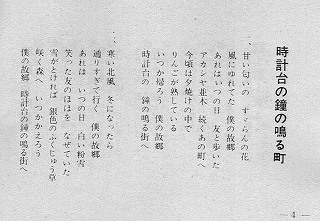 時計台の鐘の鳴る町
一、甘い匂いの すゞらんの花
風にゆれてた 僕の故郷
あれはいつの日 友と歩いた
アカシヤ並木 続くあの町へ
今頃は夕焼けの中で
りんごが熟している
いつか帰ろう 僕の故郷
時計台の 鐘の鳴る街へ
二、寒い北風 冬になったら
通りすぎて行く 僕の故郷
あれは いつの日 白い粉雪
笑った友のほほを なぜていた
雪がとければ 銀色のふくじゅう草
咲く森へ いつかかえろう
僕の故郷 時計台の鐘の鳴る街へ
— 4 —